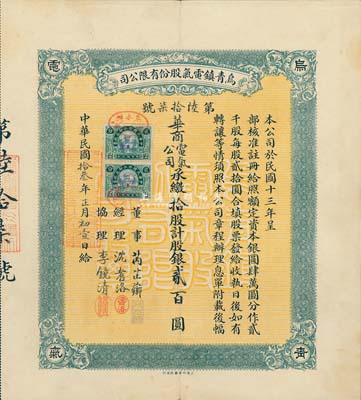 烏青鎮電氣股份有限公司
烏
電
青
氣
第陸拾柒號
本公司於民國十三年呈
部核准註冊給照額定資本銀圓肆萬圓分作貳
千股每股貳拾圓合填股票發給收執日後如有
轉讓等情須照本公司章程辦理息單附載後幅
華商電氣公司永繼拾股計股銀貳百圓
董事
經理 沈
協理 李鏡清
中華民國拾叁年正月初壹日給
第陸拾柒號